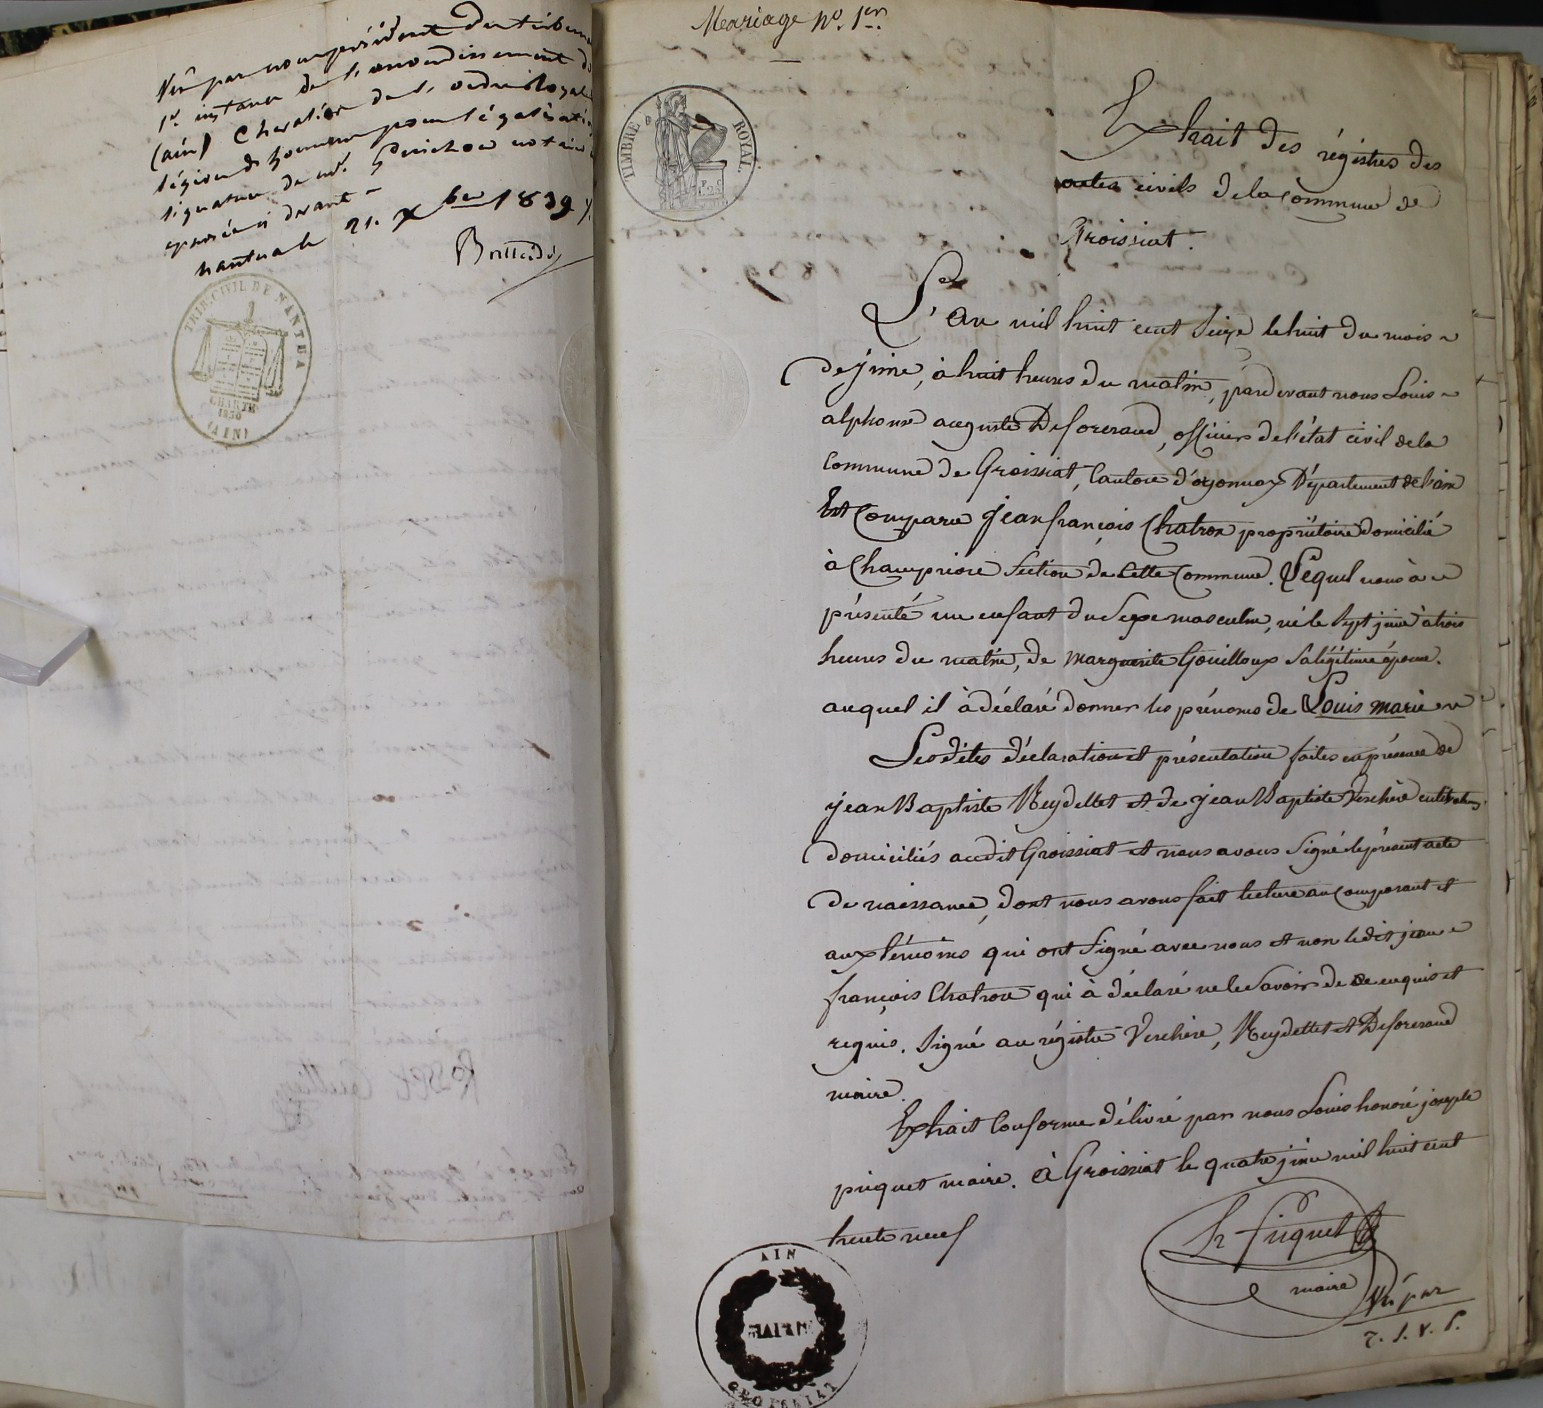 Vu par nous président du tribunal
1re instance de l'arrondissement de
(ain) Chevalier de l'ordre Royal
légion d'honneur pour légalisation
signature de mr. Guichon notaire
apposée ci devant
Nantua le 21. Xbre 1839
TRIB. CIVIL DE NANTUA
CHARTE
1830
(AIN)
Mariage no. 1er.
TIMBRE ROYAL.
Extrait des régistres des
actes civils de la Commune de
Groissiat.
L'an mil huit cent Seize le huit du mois
de juin, à huit heures du matin, pardevant nous Louis
alphonse auguste Deforcrand, officier de l'état civil de la
Commune de Groissiat, Canton d'oyonnax Département de l'ain
Est Comparu jean françois Chatron propriétaire domicilié
à Champrion Section de Cette Commune. Lequel nous à
présenté un enfant du Sexe masculin, né le Sept juin à trois
heures du matin, de marguerite Gouilloux Sa légitime épouse.
auquel il à déclaré donner les prénoms de Louis marie
Les dites déclaration et présentation faites en présence de
jean Baptiste Reydellet et de jean Baptiste Verchère cultivateurs
domiciliés audit Groissiat et nous avons Signé le présent acte
de naissance, dont nous avons fait lecture au Comparant et
aux témoins qui ont Signé avec nous et non ledit jean
françois Chatron qui à déclaré ne le Savoir de ce enquis et
requis. Signé au régistre Verchère, Reydellet et Deforcrand
maire.
Extrait Conforme délivré par nous Louis honoré joseph
piquet maire. à Groissiat le quatre juin mil huit cent
trente neuf
h piquet
maire
Vu par
T. S. V. P.
AIN
MAIRIE
GROISSIAT